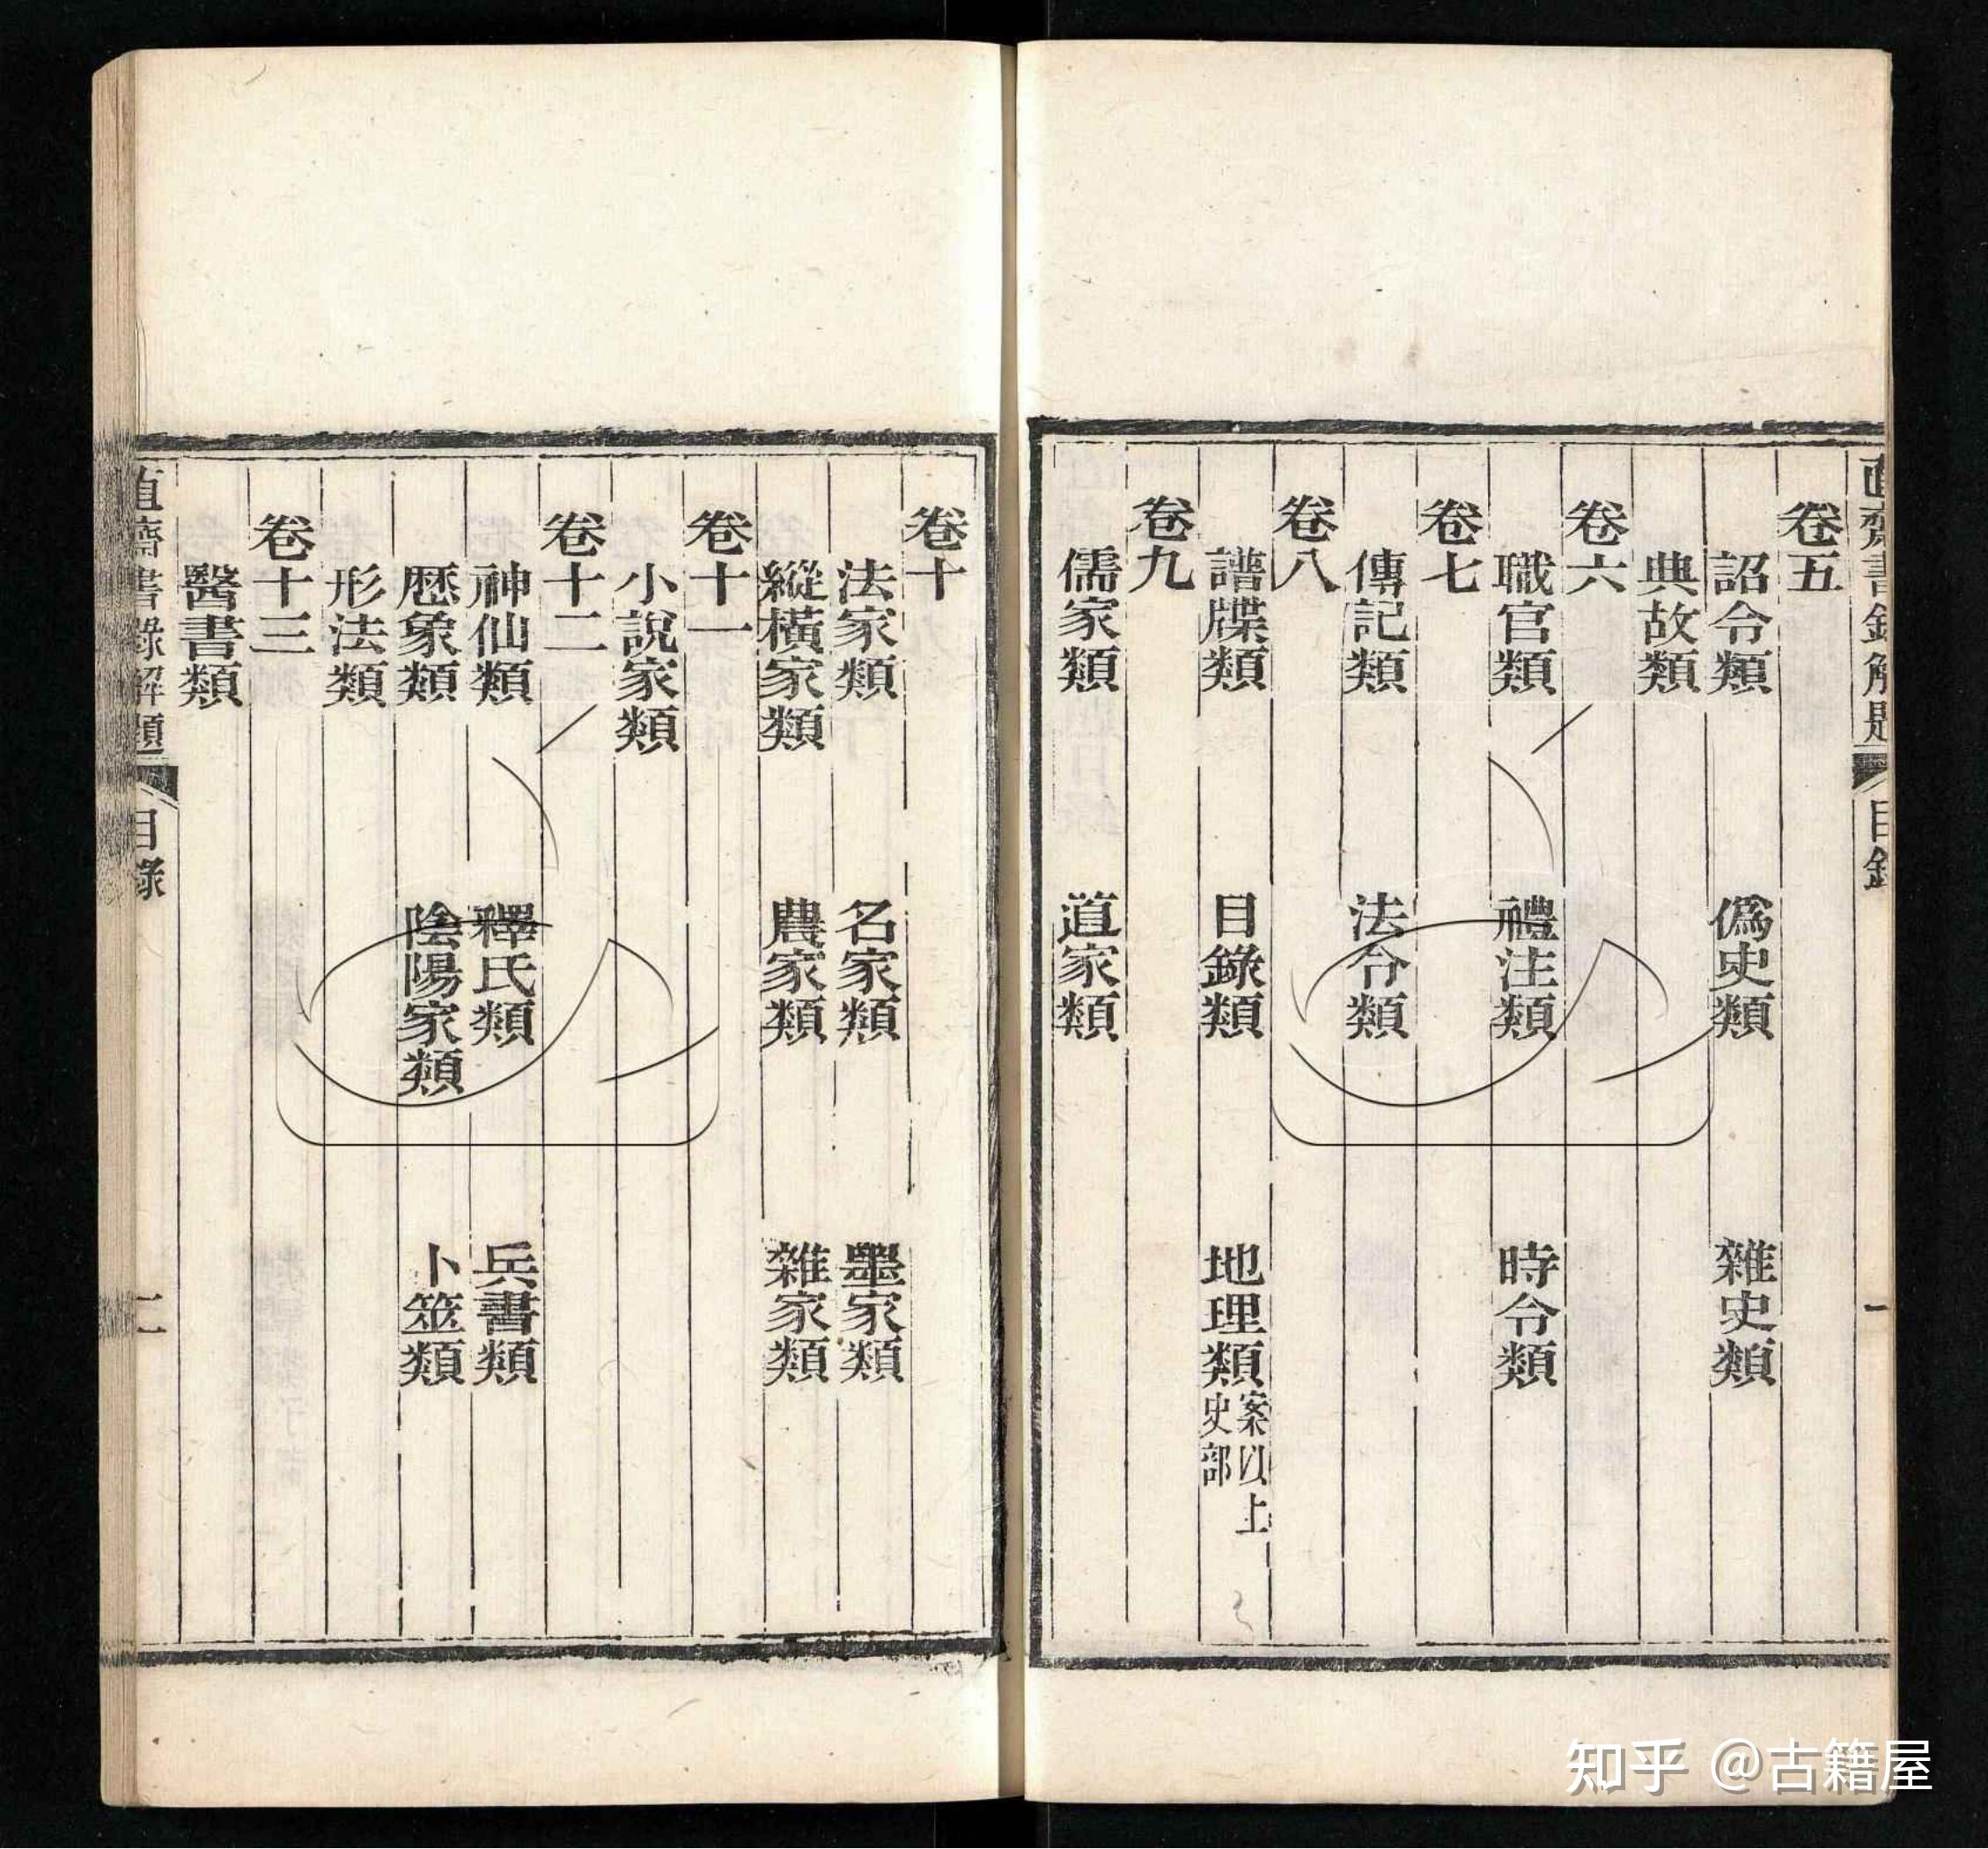 直齋書錄解題 目錄 一
卷五
詔令類 僞史類 雜史類
典故類
卷六
職官類 禮注類 時令類
卷七
傳記類 法令類
卷八
譜牒類 目錄類 地理類 案以上史部
卷九
儒家類 道家類
卷十
法家類 名家類 墨家類
縱橫家類 農家類 雜家類
卷十一
小說家類
卷十二
神仙類 釋氏類 兵書類
歷象類 陰陽家類 卜筮類
形法類
卷十三
醫書類
直齋書錄解題 目錄 二
知乎 @古籍屋